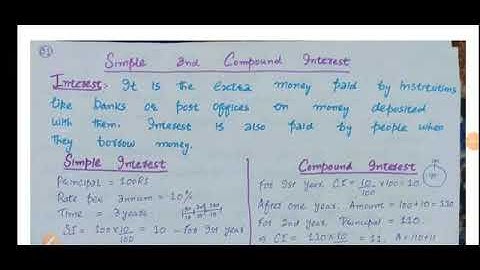 Simple and Compound Interest
Interest:- It is the extra money paid by institutions
like banks or post offices on money deposited
with them. Interest is also paid by people when
they borrow money.
Simple Interest
Principal = 100Rs
Rate per annum = 10%
Time = 3 years
SI = 100 × 10/100 = 10 - For 1st year
Compound Interest
For 1st year CI = 10/100 × 100 = 10
After one year, Amount = 100 + 10 = 110
For 2nd year, Principal = 110
CI = 110 × 10/100 = 11. A = 110 + 11